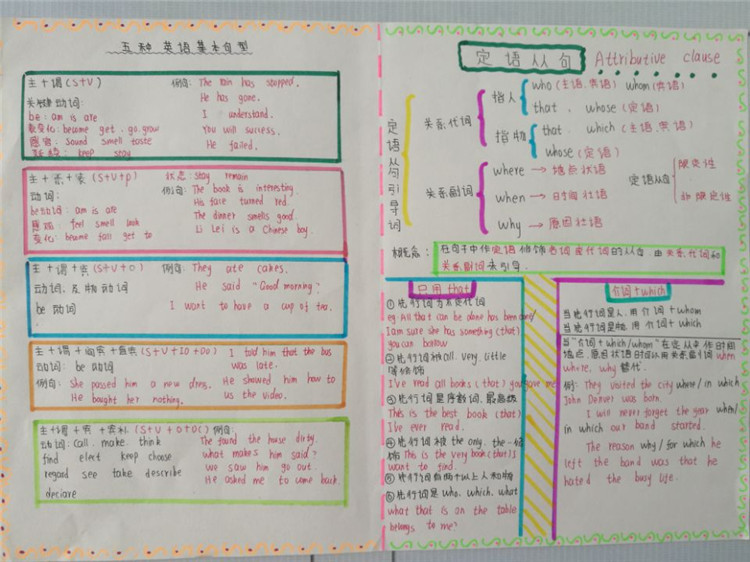 五种英语基本句型
主+谓(S+V) 例句: The rain has stopped.
关键动词: He has gone.
be: am is are I understand.
变化: become get. go. grow You will success.
感官: sound smell taste He failed.
延续: keep stay
主+系+表(S+V+P) 状态: stay remain
动词: 例句: The book is interesting.
be动词: am is are His face turned red.
感观: feel smell look The dinner smells good.
变化: become fall get to Li Lei is a Chinese boy.
主+谓+宾(S+V+O) 例句: They ate cakes.
动词: 及物动词 He said "Good morning."
be 动词 I want to have a cup of tea.
主+谓+间宾+直宾(S+V+IO+DO) I told him that the bus
动词: be 动词 was late.
例句: She passed him a new dress. He showed him how to
He bought her nothing. us the video.
主+谓+宾+宾补(S+V+O+OC) 例句:
动词: call. make. think The found the house dirty.
find elect keep choose what makes him said?
regard see take describe we saw him go out.
declare He asked me to come back.
定语从句 Attributive clause
定语从句引导词
关系代词
指人
who(主语、宾语) whom(宾语)
that. whose(定语)
指物
that. which(主语、宾语)
whose(定语)
关系副词
where → 地点状语
when → 时间状语
why → 原因状语
定语从句
限定性
非限定性
概念: 在句子中作定语修饰名词或代词的从句,由关系代词和
关系副词来引导.
只用that
①先行词为不定代词
eg. All that can be done has been done/
I am sure she has something (that)
you can borrow
②先行词被all. very. little
等修饰
I've read all books (that) you gave me
③先行词是序数词、最高级
This is the best book (that)
I've ever read.
④先行词被the only. the
饰 This is the very book (that) I
want to find.
⑤先行词有两个以上人和物
⑥先行词是who. which. what
what that is on the table
belongs to me?
介词+which
当先行词是人,用介词+whom
当先行词是物,用介词+which
当"介词+which/whom"在定从中作时间
地点、原因状语时可以用关系副词when
where, why替代.
例: They visited the city where/in which
John Denver was born.
I will never forget the year when/
in which our band started.
The reason why/for which he
left the band was that he
hated the busy life.